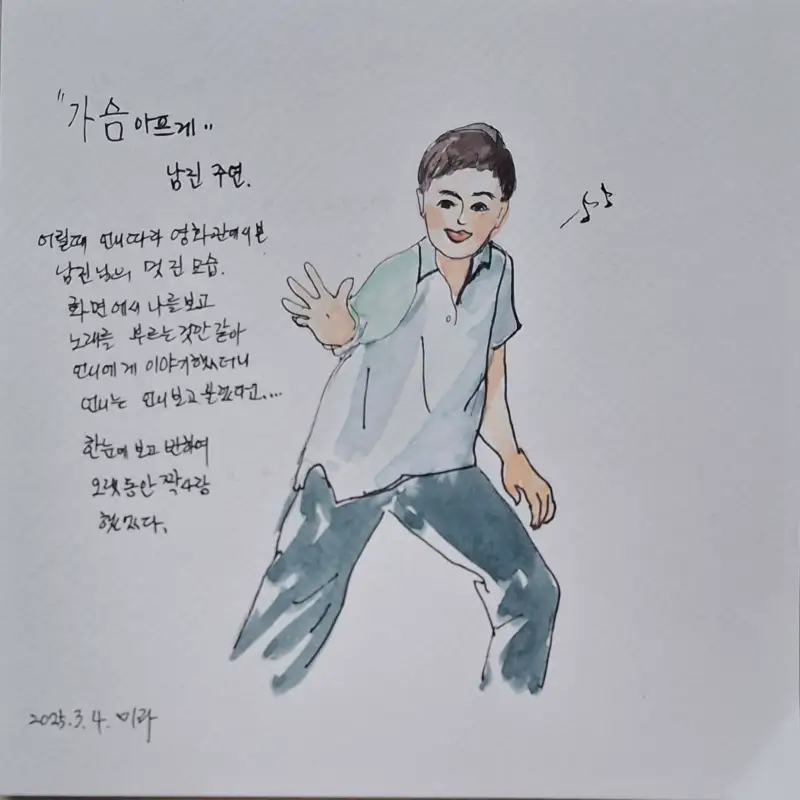 "가슴 아프게"
남진 주연.
어릴때 언니따라 영화관에서 본
남진님의 멋진 모습.
화면에서 나를 보고
노래를 부르는것만 같아
언니에게 이야기했었더니
언니는 언니보고 불렀다고....
한눈에 보고 반하여
오랫동안 짝사랑
했었다.
2025.3.4. 미라